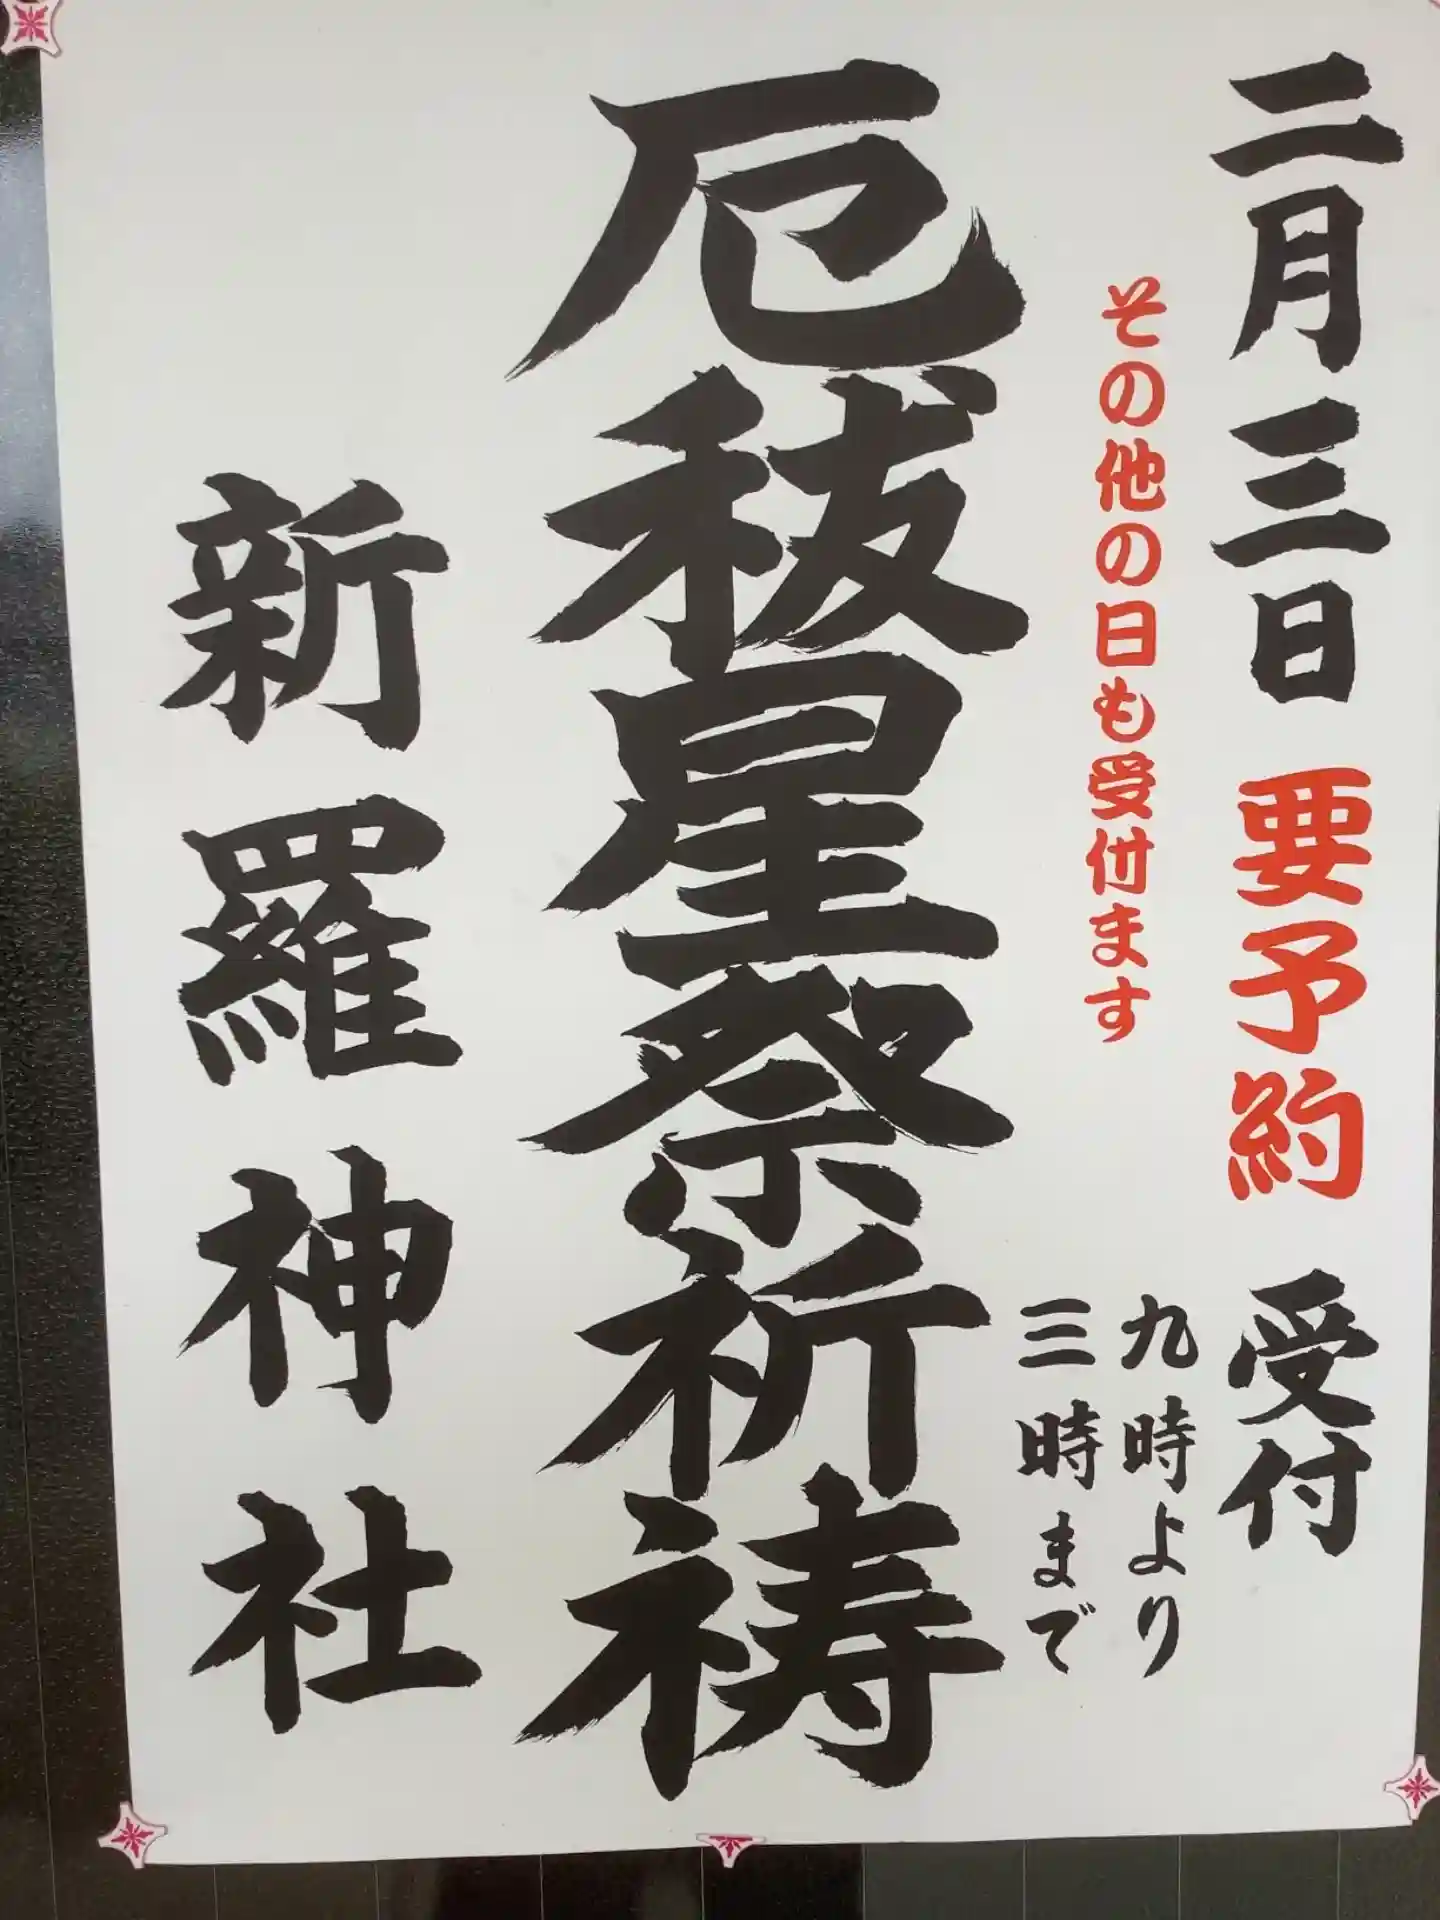 二月三日 要予約 受付
九時より
三時まで
その他の日も受付ます
厄祓星祭祈祷
新羅神社